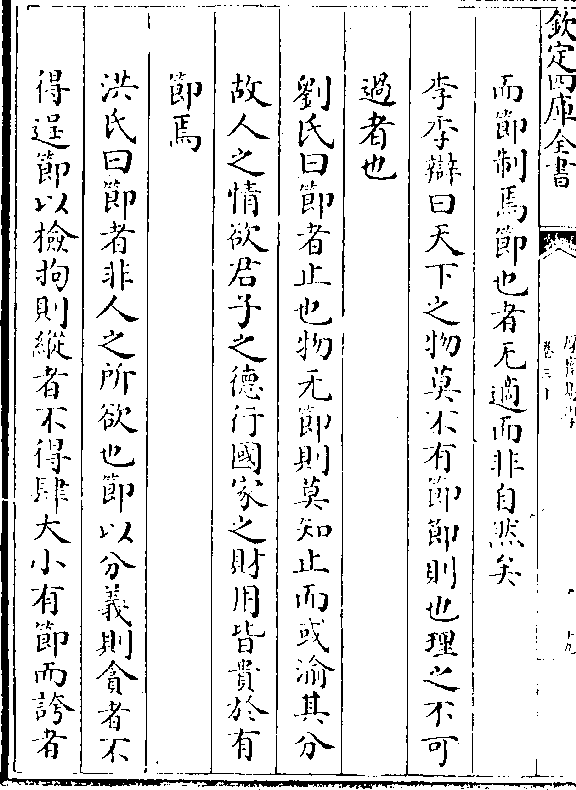 欽定四庫全書
而節制焉節也者无適而非自然矣
李季辯曰天下之物莫不有節節則也理之不可
過者也
劉氏曰節者止也物无節則莫知止而或渝其分
故人之情欲君子之德行國家之財用皆貴於有
節焉
洪氏曰節者非人之所欲也節以分義則貪者不
得逞節以檢拘則縱者不得肆大小有節而誇者